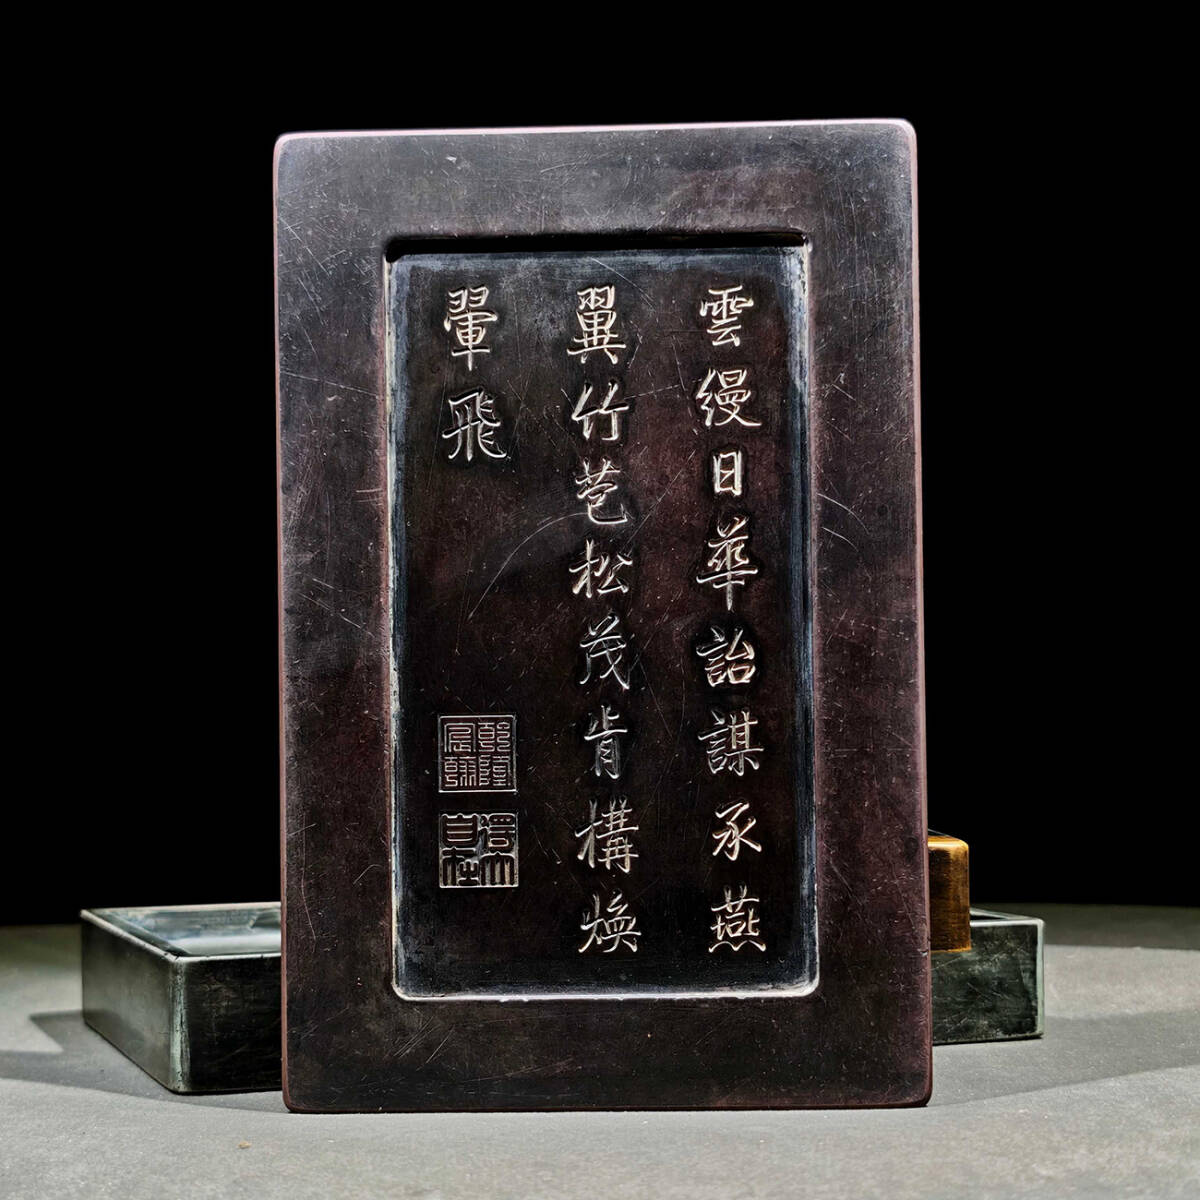 雲縵日華詒謀承燕
翼竹苞松茂肯構煥
翬飛
乾隆宸翰